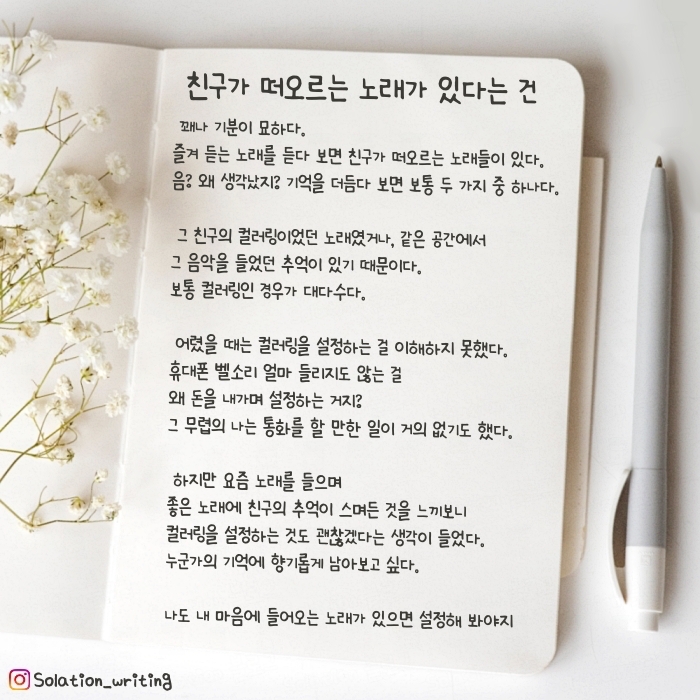 친구가 떠오르는 노래가 있다는 건
꽤나 기분이 묘하다.
즐겨 듣는 노래를 듣다 보면 친구가 떠오르는 노래들이 있다.
음? 왜 생각났지? 기억을 더듬다 보면 보통 두 가지 중 하나다.
그 친구의 컬러링이었던 노래였거나, 같은 공간에서
그 음악을 들었던 추억이 있기 때문이다.
보통 컬러링인 경우가 대다수다.
어렸을 때는 컬러링을 설정하는 걸 이해하지 못했다.
휴대폰 벨소리 얼마 들리지도 않는 걸
왜 돈을 내가며 설정하는 거지?
그 무렵의 나는 통화를 할 만한 일이 거의 없기도 했다.
하지만 요즘 노래를 들으며
좋은 노래에 친구의 추억이 스며든 것을 느끼보니
컬러링을 설정하는 것도 괜찮겠다는 생각이 들었다.
누군가의 기억에 향기롭게 남아보고 싶다.
나도 내 마음에 들어오는 노래가 있으면 설정해 봐야지
Solation_writing